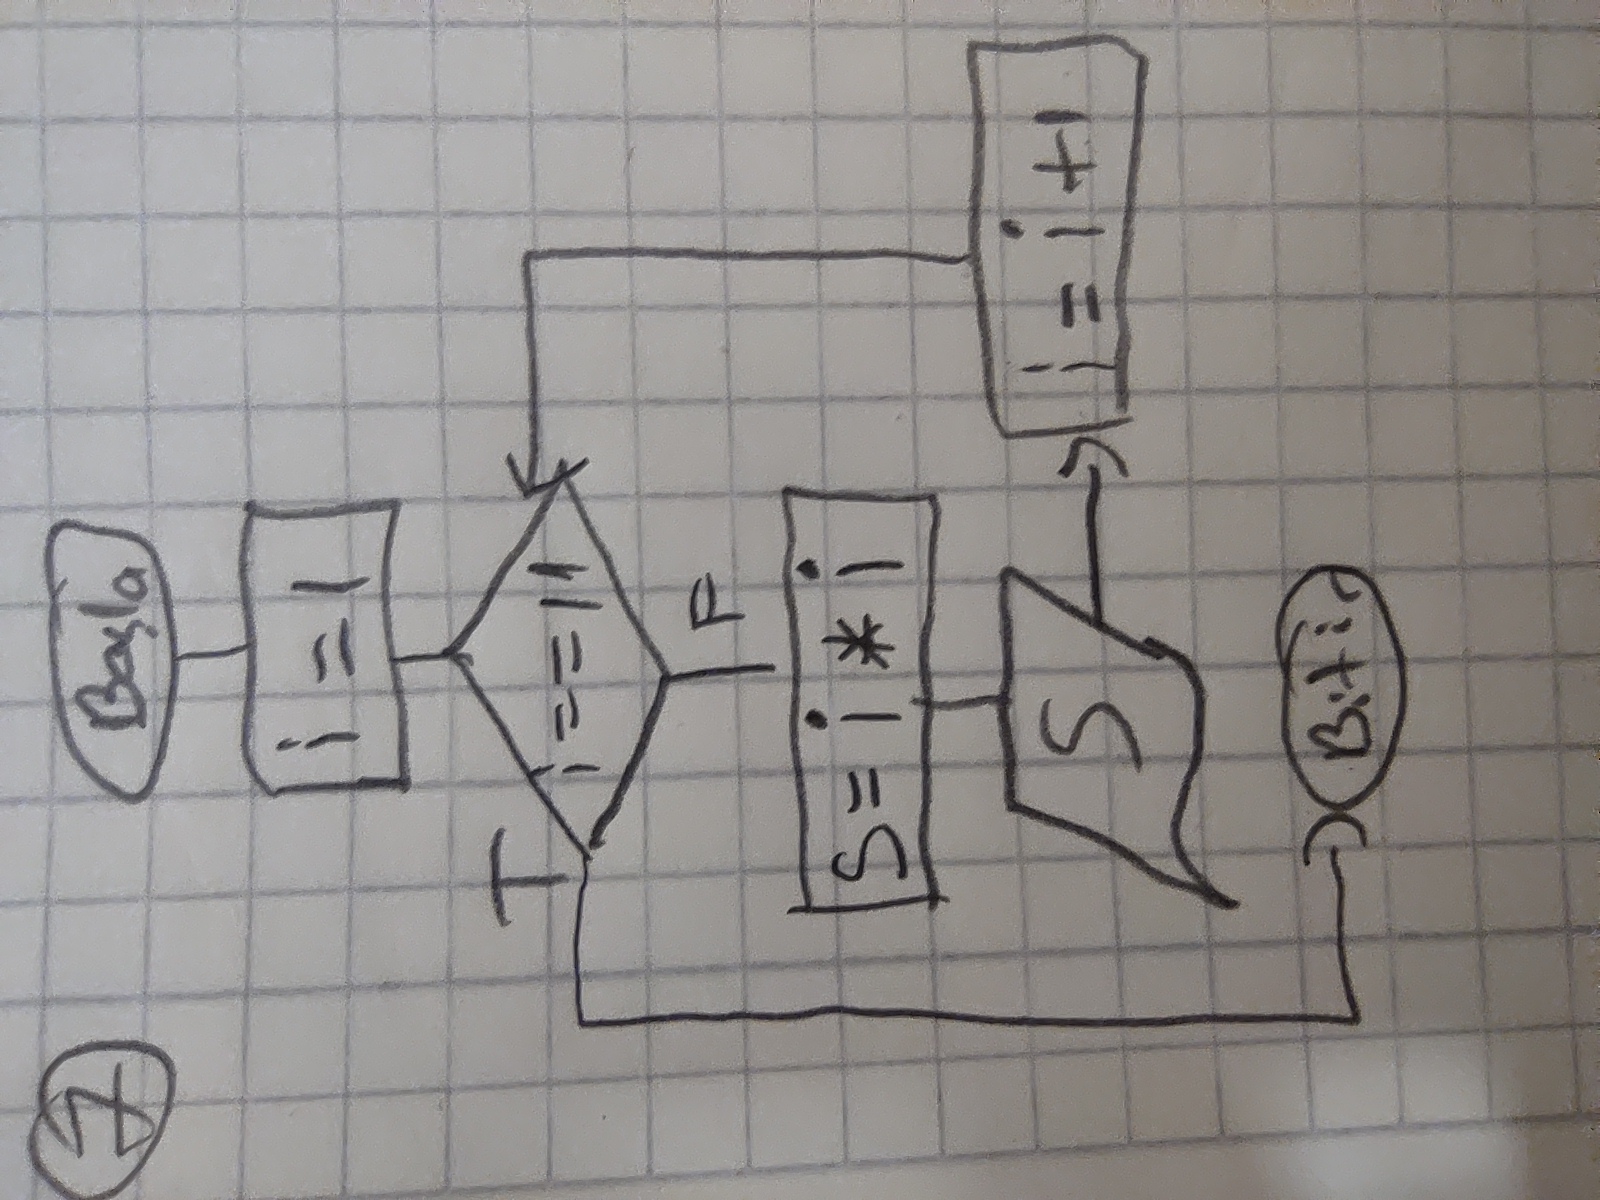 7
Başla
i = 1
T
i == 11
F
S = i * i
S
i = i + 1
Bitir